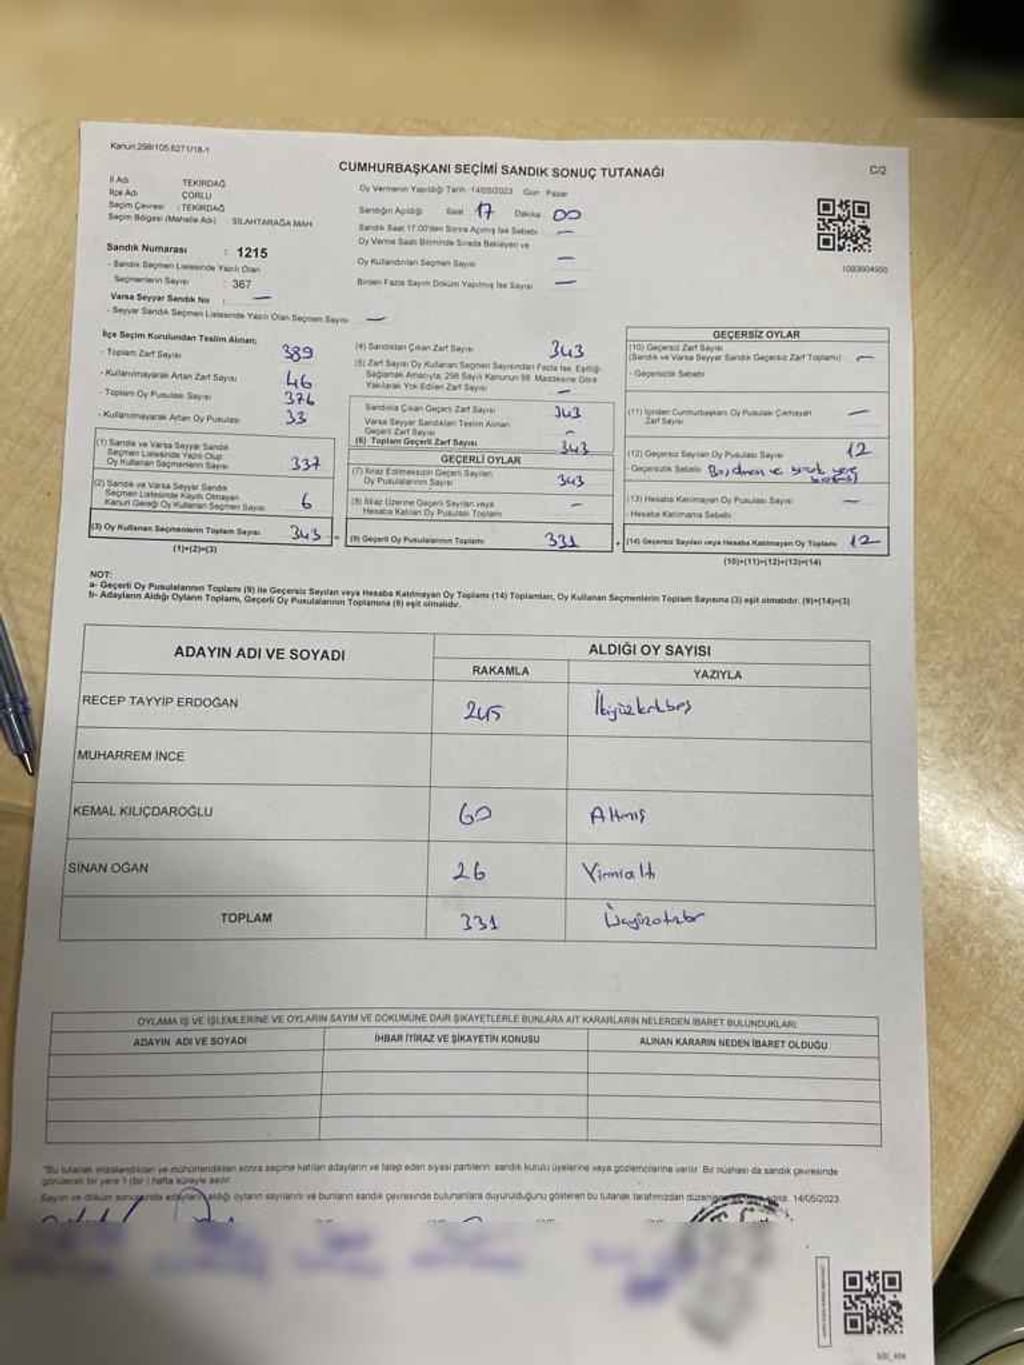 Kanun:298/105.6271/18-1
CUMHURBAŞKANI SEÇİMİ SANDIK SONUÇ TUTANAĞI
C/2
İl Adı TEKİRDAĞ
İlçe Adı ÇORLU
Seçim Çevresi : TEKİRDAĞ
Seçim Bölgesi (Mahalle Adı) : SİLAHTARAĞA MAH
Sandık Numarası : 1215
- Sandık Seçmen Listesinde Yazılı Olan
Seçmenlerin Sayısı : 367
Varsa Seyyar Sandık No : —
- Seyyar Sandık Seçmen Listesinde Yazılı Olan Seçmen Sayısı —
Oy Vermenin Yapıldığı Tarih 14/05/2023 Gün Pazar
Sandığın Açıldığı Saat 17 Dakika 00
Sandık Saat 17:00'den Sonra Açılmış İse Sebebi —
Oy Verme Saati Bitiminde Sırada Bekleyen ve
Oy Kullandırılan Seçmen Sayısı —
Birden Fazla Sayım Döküm Yapılmış İse Sayısı —
İlçe Seçim Kurulundan Teslim Alınan;
- Toplam Zarf Sayısı 389
- Kullanılmayarak Artan Zarf Sayısı 46
- Toplam Oy Pusulası Sayısı 376
- Kullanılmayarak Artan Oy Pusulası 33
(1) Sandık ve Varsa Seyyar Sandık
Seçmen Listesinde Yazılı Olup
Oy Kullanan Seçmenlerin Sayısı 337
(2) Sandık ve Varsa Seyyar Sandık
Seçmen Listesinde Kayıtlı Olmayan
Kanun Gereği Oy Kullanan Seçmen Sayısı 6
(3) Oy Kullanan Seçmenlerin Toplam Sayısı 343 =
(1)+(2)=(3)
(4) Sandıktan Çıkan Zarf Sayısı 343
(5) Zarf Sayısı Oy Kullanan Seçmen Sayısından Fazla İse, Eşitliği
Sağlamak Amacıyla, 298 Sayılı Kanunun 98. Maddesine Göre
Yakılarak Yok Edilen Zarf Sayısı —
Sandıkta Çıkan Geçerli Zarf Sayısı 343
Varsa Seyyar Sandıktan Teslim Alınan
Geçerli Zarf Sayısı —
(6) Toplam Geçerli Zarf Sayısı 343
GEÇERLİ OYLAR
(7) İtiraz Edilmeksizin Geçerli Sayılan
Oy Pusulalarının Sayısı 343
(8) İtiraz Üzerine Geçerli Sayılan veya
Hesaba Katılan Oy Pusulası Toplamı —
(9) Geçerli Oy Pusulalarının Toplamı 331 +
GEÇERSİZ OYLAR
(10) Geçersiz Zarf Sayısı
(Sandık ve Varsa Seyyar Sandık Geçersiz Zarf Toplamı) —
- Geçersizlik Sebebi
(11) İçinden Cumhurbaşkanı Oy Pusulası Çıkmayan
Zarf Sayısı —
(12) Geçersiz Sayılan Oy Pusulası Sayısı 12
- Geçersizlik Sebebi
(13) Hesaba Katılmayan Oy Pusulası Sayısı —
- Hesaba Katılmama Sebebi
(14) Geçersiz Sayılan veya Hesaba Katılmayan Oy Toplamı 12
(10)+(11)+(12)+(13)=(14)
1093904900
NOT:
a- Geçerli Oy Pusulalarının Toplamı (9) ile Geçersiz Sayılan veya Hesaba Katılmayan Oy Toplamı (14) Toplamları, Oy Kullanan Seçmenlerin Toplam Sayısına (3) eşit olmalıdır. (9)+(14)=(3)
b- Adayların Aldığı Oyların Toplamı, Geçerli Oy Pusulalarının Toplamına (9) eşit olmalıdır.
ADAYIN ADI VE SOYADI
ALDIĞI OY SAYISI
RAKAMLA YAZIYLA
RECEP TAYYİP ERDOĞAN 245 İkiyüzkırkbeş
MUHARREM İNCE
KEMAL KILIÇDAROĞLU 60 Altmış
SİNAN OĞAN 26 Yirmialtı
TOPLAM 331 Üçyüzotuzbir
OYLAMA İŞ VE İŞLEMLERİNE VE OYLARIN SAYIM VE DÖKÜMÜNE DAİR ŞİKAYETLERLE BUNLARA AİT KARARLARIN NELERDEN İBARET BULUNDUKLARI
ADAYIN ADI VE SOYADI İHBAR İTİRAZ VE ŞİKAYETİN KONUSU ALINAN KARARIN NEDEN İBARET OLDUĞU
"Bu tutanak imzalandıktan ve mühürlendikten sonra seçime katılan adayların ve talep eden siyasi partilerin sandık kurulu üyelerine veya gözlemcilerine verilir. Bir nüshası da sandık çevresinde
görülecek bir yere 1 (bir) hafta süreyle asılır.
Sayım ve döküm sonucunda adayların aldığı oyların sayılarını ve bunların sandık çevresinde bulunanlara duyurulduğunu gösteren bu tutanak tarafımızdan 14/05/2023